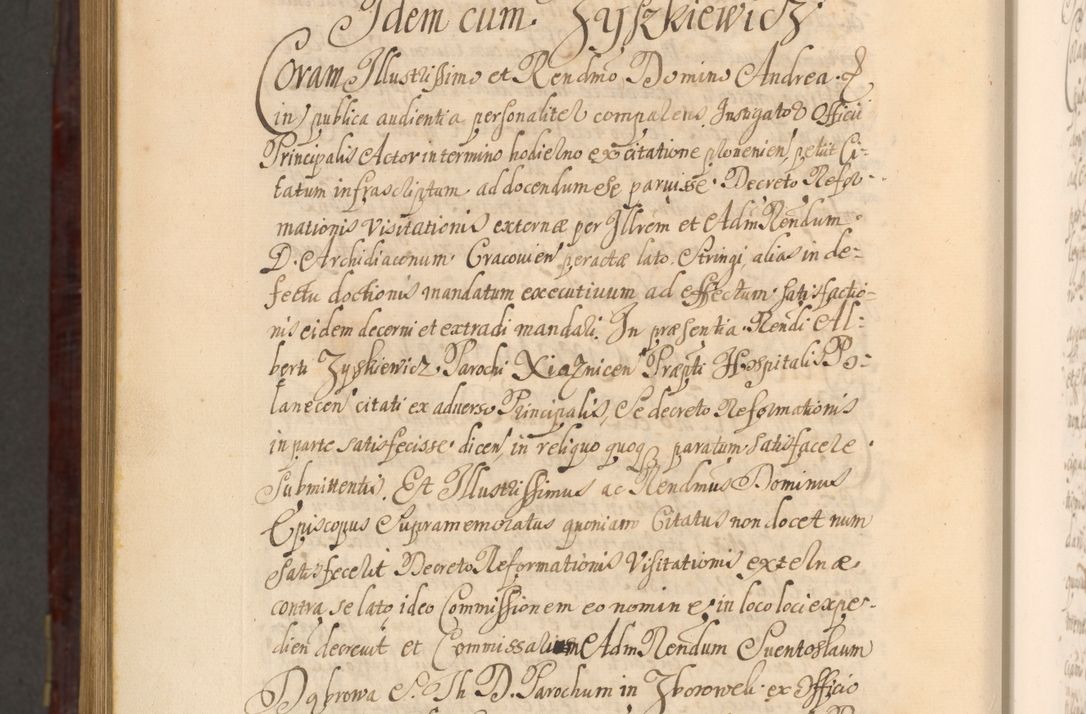 Idem cum Zyszkiewicz
Coram Illustrissimo et Rendmo Domino Andrea &
in publica audientia personaliter comparens Instigator Officii
Principalis Actor in termino hodierno ex citatione provenien petiit Ci-
tatum infrascriptum ad docendum esse paruisse Decreto Refor-
mationis Visitationis externæ per Illrem et AdmRendum
D. Archidiaconum Cracovien peractæ lato. Stringi, alias in de-
fectu doctionis mandatum executivum ad effectum satisfactio-
nis eidem decerni et extradi mandari. In præsentia Rendi Al-
berti Zyskiewicz Parochi Xiąznicen Præpti Hospitalis Po-
lanecen citati ex adverso Principalis, Se decreto Reformationis
in parte satisfecisse dicen, in reliquo quoq paratum satisfacere
Submittentis. Et Illustrissimus ac Rendmus Dominus
Episcopus Supramemoratus quoniam Citatus non docet num
Satisfecerit Decreto Reformationis Visitationis externæ
contra se lato ideo Commissionem eo nomine in loco loci expe-
dien decrevit et Commissarium AdmRendum Suentoslaum
Dąbrowa S. Th D. Parochum in Zborowek ex Officio